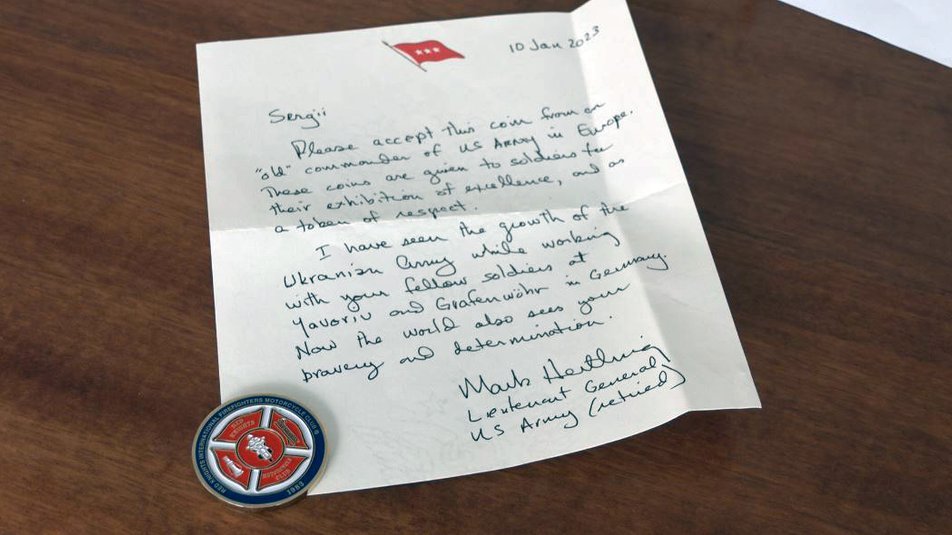 10 Jan 2023
Sergii
Please accept this coin from an
"old" commander of US Army in Europe.
These coins are given to soldiers for
their exhibition of excellence, and as
a token of respect.
I have seen the growth of the
Ukranian Army while working
with your fellow soldiers at
Yavoriv and Grafenwöhr in Germany.
Now the world also sees your
bravery and determination.
Mark Hertling
Lieutenant General
US Army (retired)
RED KNIGHTS INTERNATIONAL FIREFIGHTERS MOTORCYCLE CLUB ®
RED KNIGHTS
MOTORCYCLE CLUB
1983